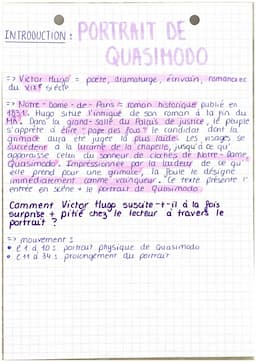 INTRODUCTION : PORTRAIT DE
QUASIMODO
=> Victor Hugo = poète, dramaturge, écrivain, romancier
du XIXe siècle
=> Notre-Dame-de-Paris = roman historique publié en
1831. Hugo situe l'intrigue de son roman à la fin du
MA. Dans la grand-salle du Palais de justice, le peuple
s'apprête à élire "pape des fous" le candidat dont la
grimace aura été jugée la plus laide. Les visages se
succèdent à la lucarne de la chapelle, jusqu'à ce qu'
apparaisse celui du sonneur de cloches de Notre-Dame,
Quasimodo. Impressionnée par la laideur de ce qu'
elle prend pour une grimace, la foule le désigne
immédiatement comme vainqueur. Ce texte présente l'
entrée en scène + le portrait de Quasimodo.
Comment Victor Hugo suscite-t-il à la fois
surprise + pitié chez le lecteur à travers le
portrait ?
=> mouvement :
• l 1 à 10 : portrait physique de Quasimodo
• l 11 à 34 : prolongement du portrait